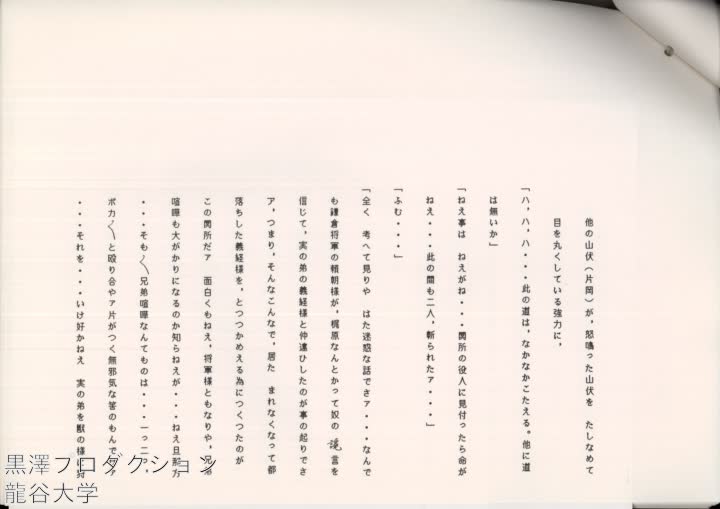 他の山伏(片岡)が,怒鳴った山伏を たしなめて
目を丸くしている強力に,
「ハ,ハ,ハ・・・此の道は,なかなかこたえる。他に道
は無いか」
「ねえ事は ねえがね・・・関所の役人に見付ったら命が
ねえ・・・此の間も二人,斬られたァ・・・」
「ふむ・・・」
「全く 考へて見りや はた迷惑な話でさァ・・・なんで
も鎌倉将軍の頼朝様が,梶原なんとかって奴の 讒言を
信じて,実の弟の義経様と仲違ひしたのが事の起りでさ
ア,つまり,そんなこんなで,居た まれなくなって都
落ちした義経様を,とつつかめえる為につくつたのが
この関所だァ 面白くもねえ,将軍様ともなりや,兄弟
喧嘩も大がかりになるのか知らねえが・・・ねえ旦那方
・・・そも〱兄弟喧嘩なんてものは・・・一つ二つ
ポカ〱と殴り合やァ片がつく無邪気な筈のもんでさァ
・・・それを・・・いけ好かねえ 実の弟を獣の様に狩
黒澤プロダクション
龍谷大学